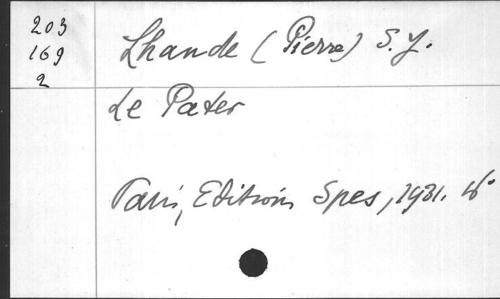 203
169
2
Lhande (Pierre) S.J.
Le Pater
Paris, Editions Spes, 1931. 16°